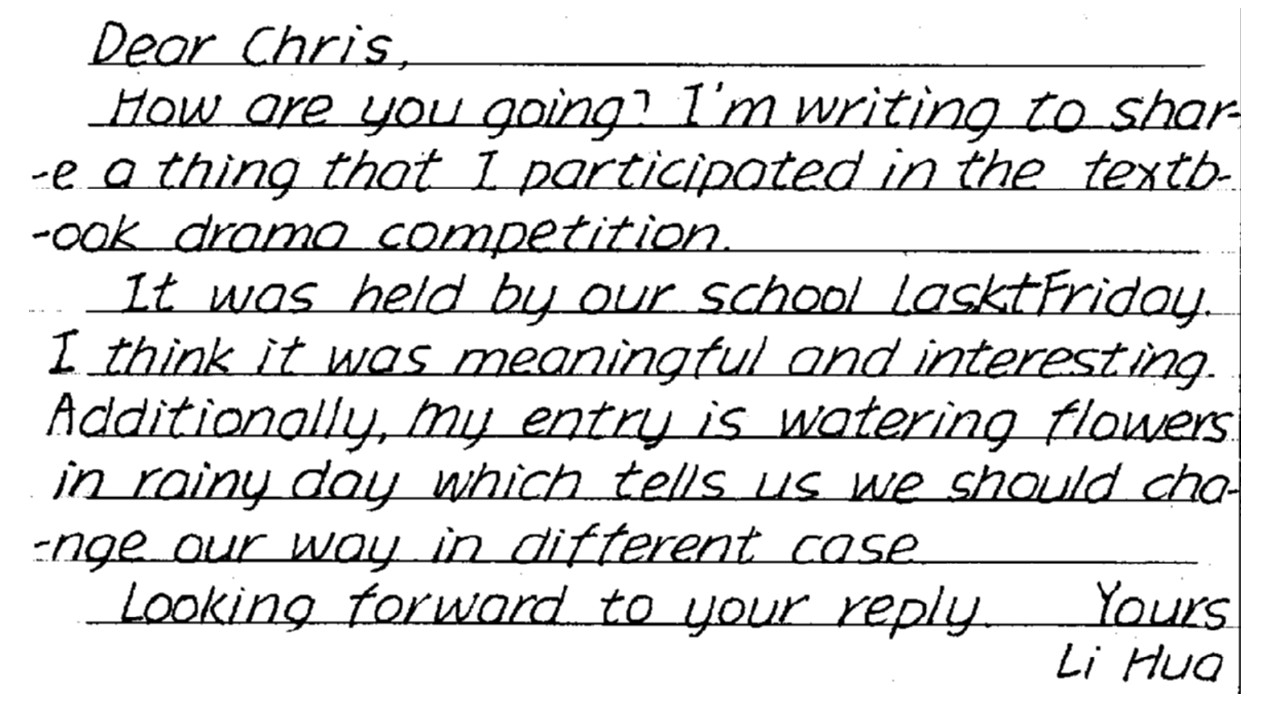 Dear Chris,
How are you going? I'm writing to shar-
-e a thing that I participated in the textb-
-ook drama competition.
It was held by our school Lasktfriday.
I think it was meaningful and interesting.
Additionally, my entry is watering flowers
in rainy day which tells us we should cha-
-nge our way in different case
Looking forward to your reply. Yours
Li Hua